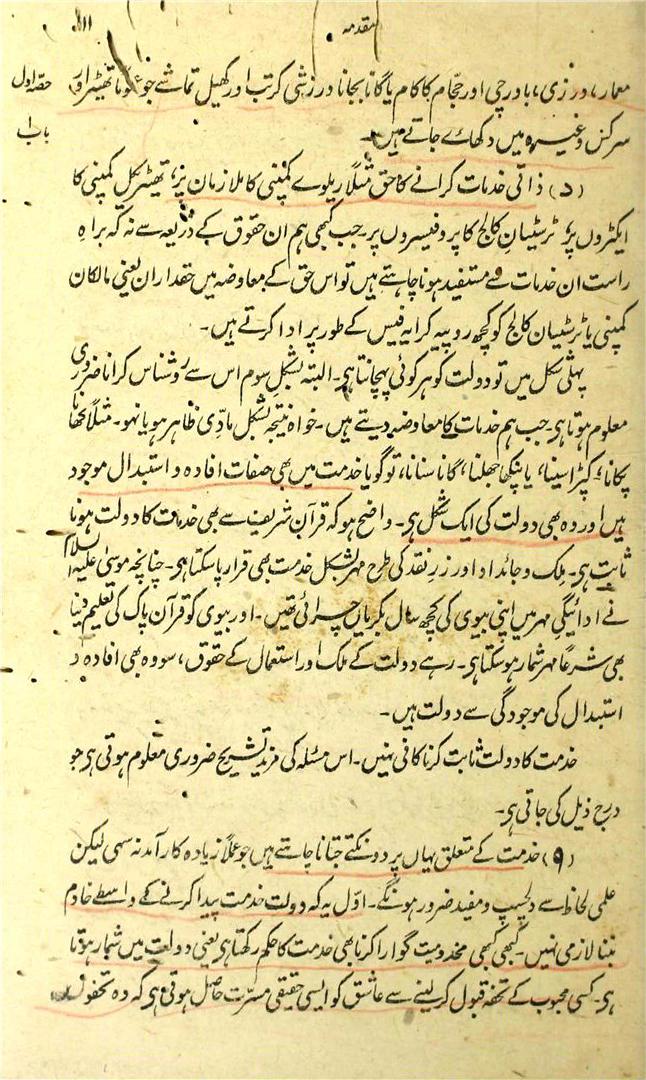 مقدمہ
حصّہ اول
باب ۱
معمار، درزی، باورچی اور حجّام کا کام یا گانا بجانا ورزشی کرتب اور کھیل تماشے جو عموماً تھیٹر اور
سرکس وغیرہ میں دکھائے جاتے ہیں۔
(د) ذاتی خدمات کرانے کا حق مثلاً ریلوے کمپنی کا ملازمان پر، تھیٹریکل کمپنی کا
ایکٹروں پر، ٹرسٹیانِ کالج کا پروفیسروں پر۔ جب کبھی ہم ان حقوق کے ذریعہ سے نہ کہ براہِ
راست ان خدمات سے مستفید ہونا چاہتے ہیں تو اس حق کے معاوضہ میں حقداران یعنی مالکان
کمپنی یا ٹرسٹیان کالج کو کچھ روپیہ کرایہ فیس کے طور پر ادا کرتے ہیں۔
پہلی شکل میں تو دولت کو ہر کوئی پہچانتا ہی۔ البتہ بشکلِ سوم اس سے روشناس کرانا ضروری
معلوم ہوتا ہی۔ جب ہم خدمات کا معاوضہ دیتے ہیں۔ خواہ نتیجہ بشکل مادّی ظاہر ہو یا نہو۔ مثلاً کھانا
پکانا، کپڑا سینا، یا پنکھا جھلنا، گانا سنانا، تو گویا خدمت میں بھی صفات افادہ و استبدال موجود
ہیں اور وہ بھی دولت کی ایک شکل ہی۔ واضح ہو کہ قرآن شریف سے بھی خدمات کا دولت ہونا
ثابت ہی۔ ملک و جائداد اور زرِ نقد کی طرح مہر بشکل خدمت بھی قرار پا سکتا ہی۔ چنانچہ موسیٰ علیہ السلام
نے ادائیگی مہر میں اپنی بیوی کی کچھ سال بکریاں چرائی تھیں۔ اور بیوی کو قرآن پاک کی تعلیم دینا
بھی شرعاً مہر شمار ہو سکتا ہی۔ رہے دولت کے ملک اور استعمال کے حقوق، سو وہ بھی افادہ و
استبدال کی موجودگی سے دولت ہیں۔
خدمت کا دولت ثابت کرنا کافی نہیں۔ اس مسئلہ کی مزید تشریح ضروری معلوم ہوتی ہی جو
درج ذیل کی جاتی ہی۔
(۹) خدمت کے متعلق یہاں پر دو نکتے جتانا چاہتے ہیں جو عملاً زیادہ کارآمد نہ سہی لیکن
علمی لحاظ سے دلچسپ و مفید ضرور ہونگے۔ اوّل یہ کہ دولتِ خدمت پیدا کرنے کے واسطے خادم
بننا لازمی نہیں۔ کبھی کبھی مخدومیت گوارا کرنا بھی خدمت کا حکم رکھتا ہی یعنی دولت میں شمار ہوتا
ہی۔ کسی محبوب کے تحفہ قبول کر لینے سے عاشق کو ایسی حقیقی مسرّت حاصل ہوتی ہی کہ وہ تحفوں